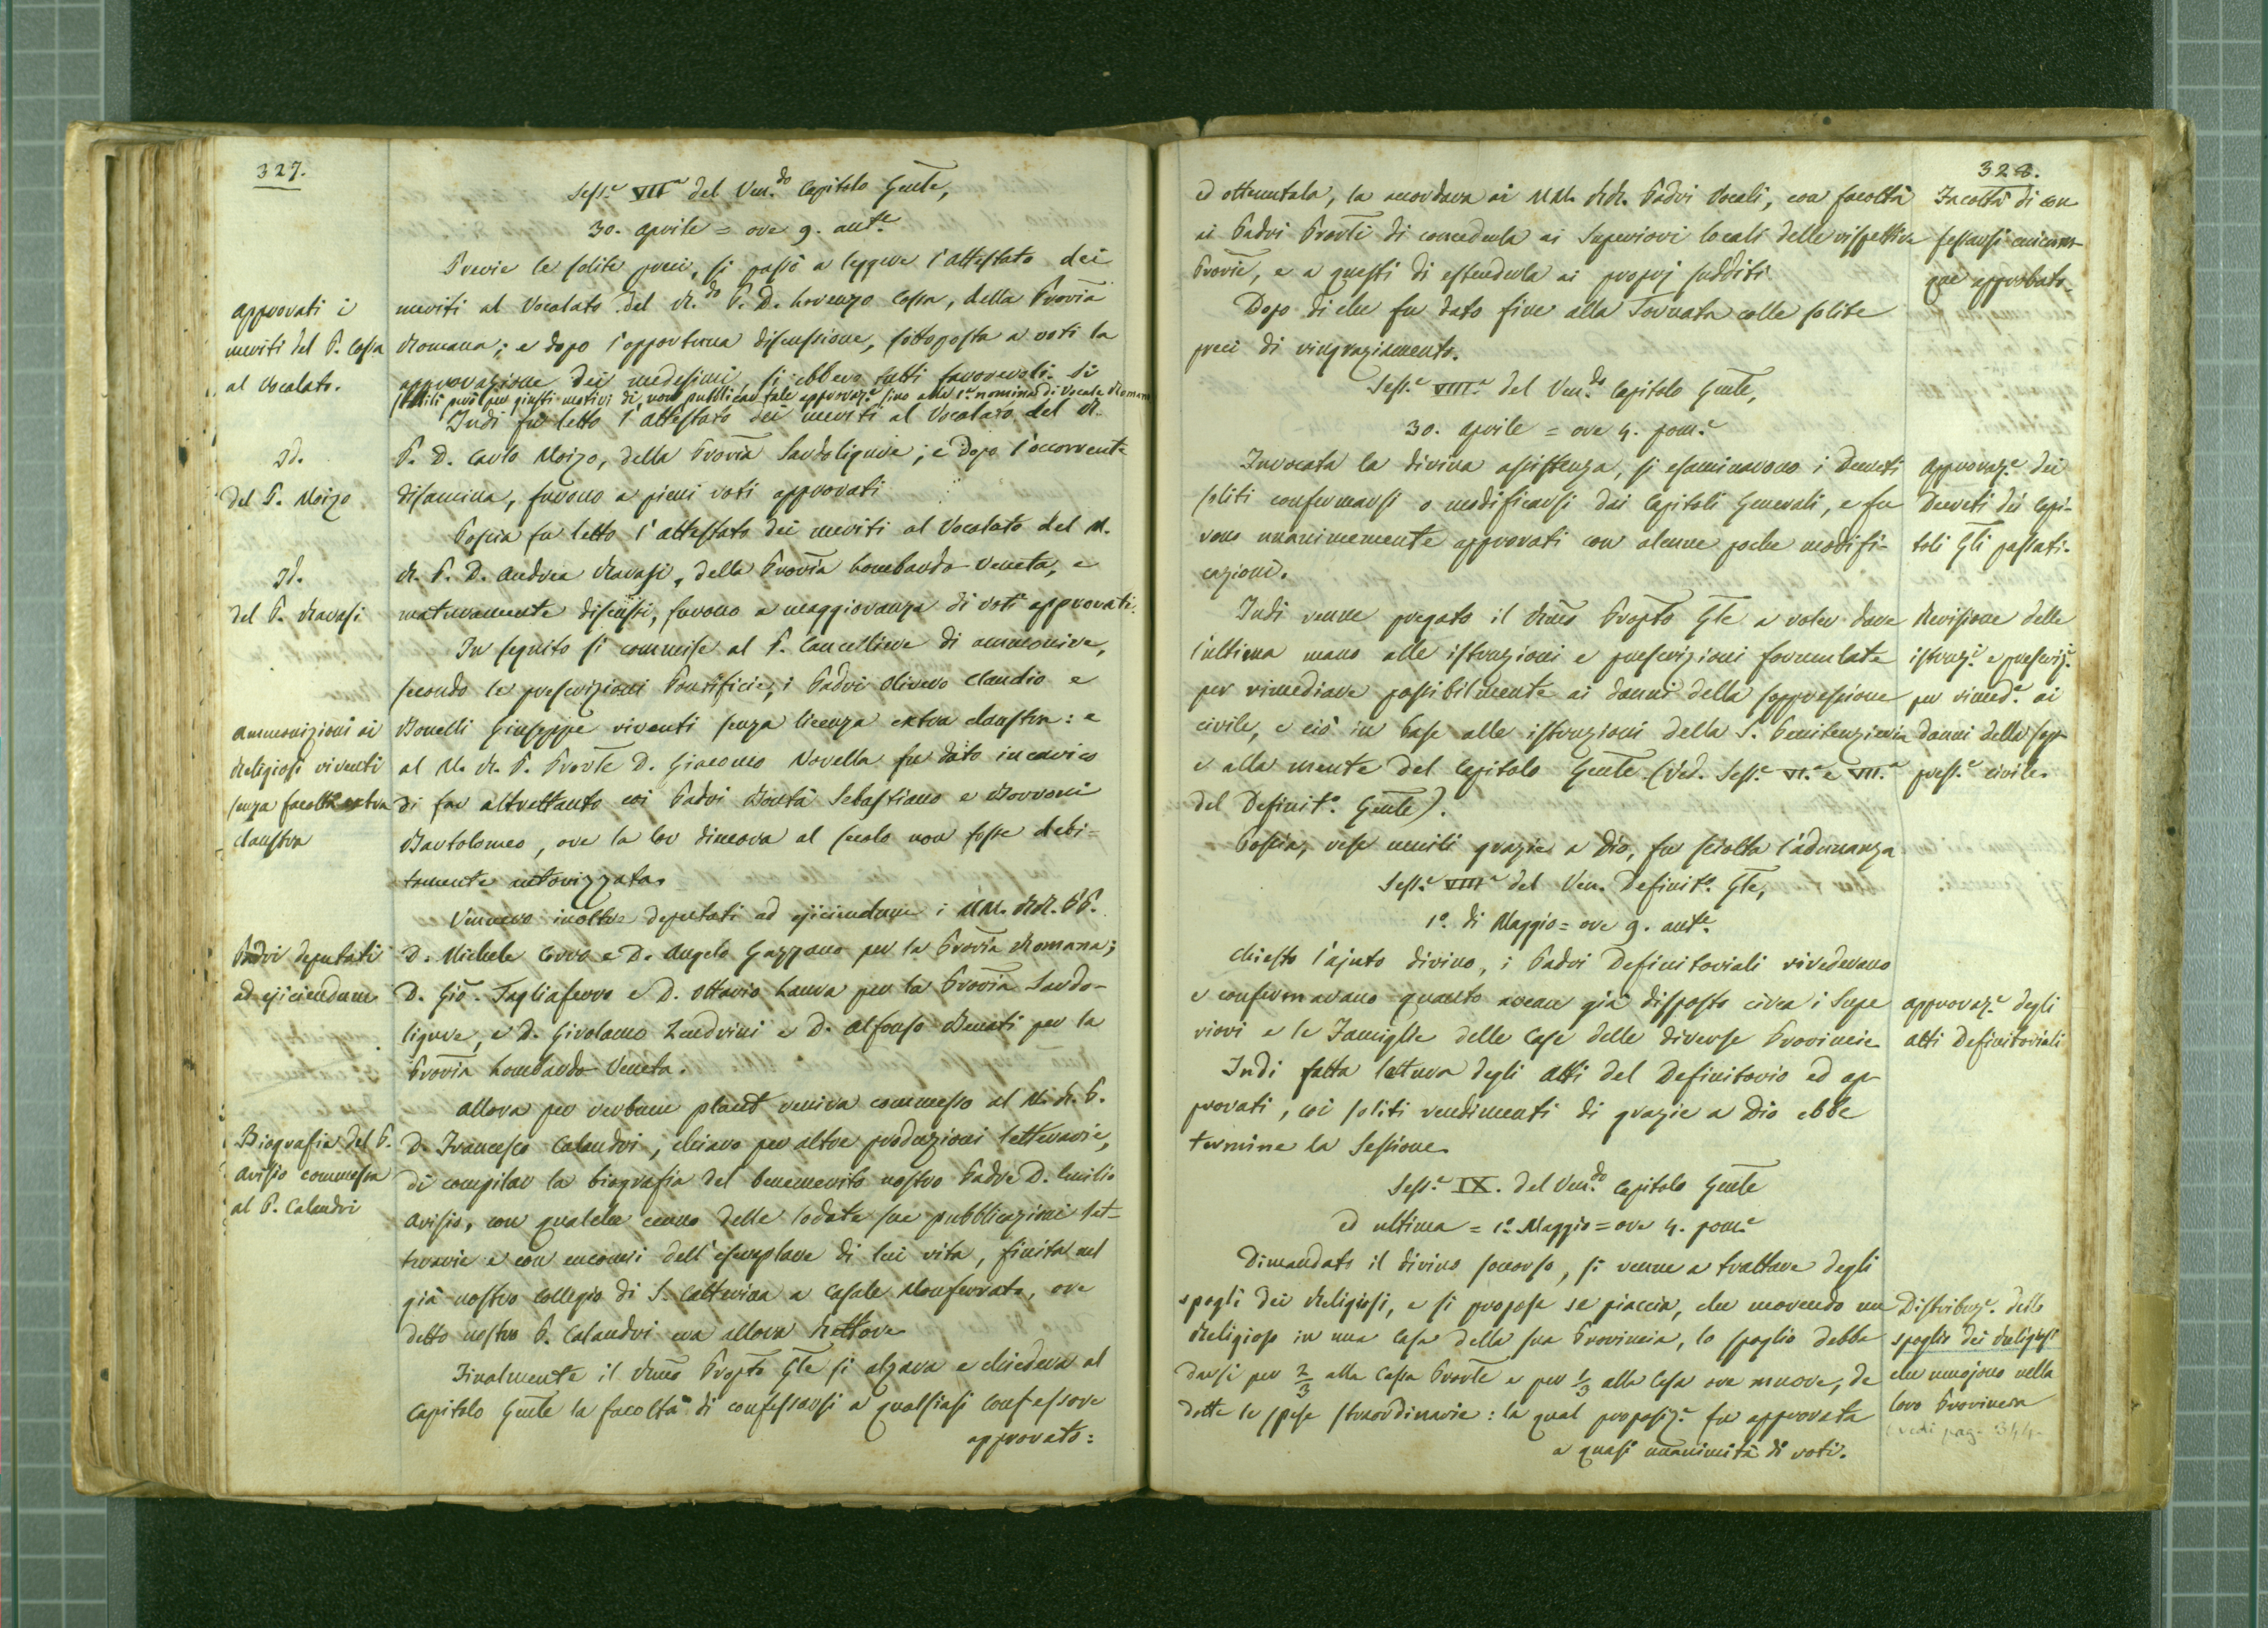 327.
Sess.e VII.a del Ven.do Capitolo Gen̄le,
30. Aprile = ore 9. ant.e
Previe le solite preci, si passò a leggere l'attestato dei
meriti al Vocalato del R.do P. D. Lorenzo Cossa, della Prov̄ia
Romana; e dopo l'opportuna discussione, sottoposta a voti la
approvazione dei medesimi si ebbero tutti favorevoli. Si
stabilì però per giusti motivi di non pubblicar tale approvaz.e sino alla 1.a nomina di Vocale Romano
Indi fu letto l'attestato dei meriti al Vocalato del R.
P. D. Carlo Moizo, della Prov̄ia Sardoligure; e dopo l'occorrente
disamina, furono a pieni voti approvati
Poscia fu letto l'attestato dei meriti al Vocalato del M.
R. P. D. Andrea Ravasi, della Prov̄ia Lombardo-Veneta, e
maturamente discussi, furono a maggioranza di voti approvati.
In seguito si commise al P. Cancelliere di ammonire,
secondo le prescrizioni Pontificie, i Padri Olivero Claudio e
Bonelli Giuseppe viventi senza licenza extra claustra: e
al M. R. P. Prov̄le D. Giacomo Novella fu dato incarico
di far altrettanto coi Padri Bontà Sebastiano e Borroni
Bartolomeo, ove la lor dimora al secolo non fosse debi=
tamente autorizzata.
Vennero inoltre deputati ad ejiciendum i MM. RR. PP.
D. Michele Corvo e D. Angelo Gazzano per la Prov̄ia Romana;
D. Gio. Tagliaferro e D. Ottavio Lanza per la Prov̄ia Sardo-
ligure, e D. Girolamo Zendrini e D. Alfonso Benati per la
Prov̄ia Lombardo-Veneta.
Allora per verbum placet veniva commesso al M. R. P.
D. Francesco Calandri, chiaro per altre produzioni letterarie,
di compilar la biografia del benemerito nostro Padre D. Emilio
Avisio, con qualche cenno delle lodate sue pubblicazioni let-
terarie e con encomi dell'esemplare di lui vita, finita nel
già nostro Collegio di S. Catterina a Casale Monferrato, ove
detto nostro P. Calandri era allora Rettore
Finalmente il Rm̄o Prop̄to Gl̄e si alzava e chiedeva al
Capitolo Gen̄le la facoltà di confessarsi a qualsiasi confessore
approvato:
approvati i
meriti del P. Cossa
al Vocalato.
Id.
del P. Moizo
Id.
del P. Ravasi
Ammonizioni ai
Religiosi viventi
senza facoltà extra
claustra
Padri deputati
ad ejiciendum
Biografia del P.
Avisio commessa
al P. Calandri
328.
ed ottenutala, la accordava ai MM. RR. Padri Vocali, con facoltà
ai Padri Prov̄li di concederla ai Superiori locali delle rispettive
Prov̄ie, e a questi di estenderla ai proprj sudditi
Dopo di che fu dato fine alla Tornata colle solite
preci di ringraziamento.
Sess.e VIII.a del Ven.do Capitolo Gen̄le,
30. Aprile = ore 4. pom.e
Invocata la divina assistenza, si esaminarono i Decreti
soliti confermarsi o modificarsi dai Capitoli Generali, e fu
rono unanimemente approvati con alcune poche modifi-
cazioni.
Indi venne pregato il Rm̄o Prop̄to Gl̄e a voler dare
l'ultima mano alle istruzioni e prescrizioni formulate
per rimediare possibilmente ai danni della soppressione
civile, e ciò in base alle istruzioni della S. Penitenzieria
e alla mente del Capitolo Gen̄le (Ved. Sess.e VI.a e VII.a
del Definit.o Gen̄le).
Poscia, rese umili grazie a Dio, fu sciolta l'adunanza
Sess.e VIII.a del Ven. Definit.o Gl̄e,
1.o di Maggio = ore 9. ant.e
Chiesto l'ajuto divino, i Padri Definitoriali rivederano
e confermavano quanto avean già disposto circa i Supe
riori e le Famiglie delle Case delle diverse Provincie
Indi fatta lettura degli Atti del Definitorio ed ap-
provati, coi soliti rendimenti di grazie a Dio ebbe
termine la Sessione.
Sess.e IX. del Ven.do Capitolo Gen̄le
ed ultima = 1.o Maggio = ore 4. pom.e
Dimandato il divino soccorso, si venne a trattare degli
spogli dei Religiosi, e si propose se piaccia, che morendo un
Religioso in una Casa della sua Provincia, lo spoglio debba
darsi per 2/3 alla Cassa Prov̄le e per 1/3 alla Casa ove muore, de
dotte le spese straordinarie: la qual proposiz.e fu approvata
a quasi unanimità di voti.
Facoltà di con
fessarsi cuicum-
que approbato.
Approvaz.e dei
Decreti dei Capi-
toli Gl̄i passati.
Revisione delle
istruz.i e prescriz.i
per rimed.e ai
danni della sop-
press.e civile.
approvaz.e degli
atti Definitoriali
Distribuz.e dello
spoglio dei Religiosi
che muojono nella
loro Provincia
(vedi pag. 344